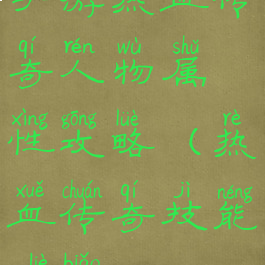 手游热血传
qí rén wù shǔ
奇人物属
xìng gōng lüè rè
性攻略（热
xuě chuán qí jì néng
血传奇技能
liè biǎo